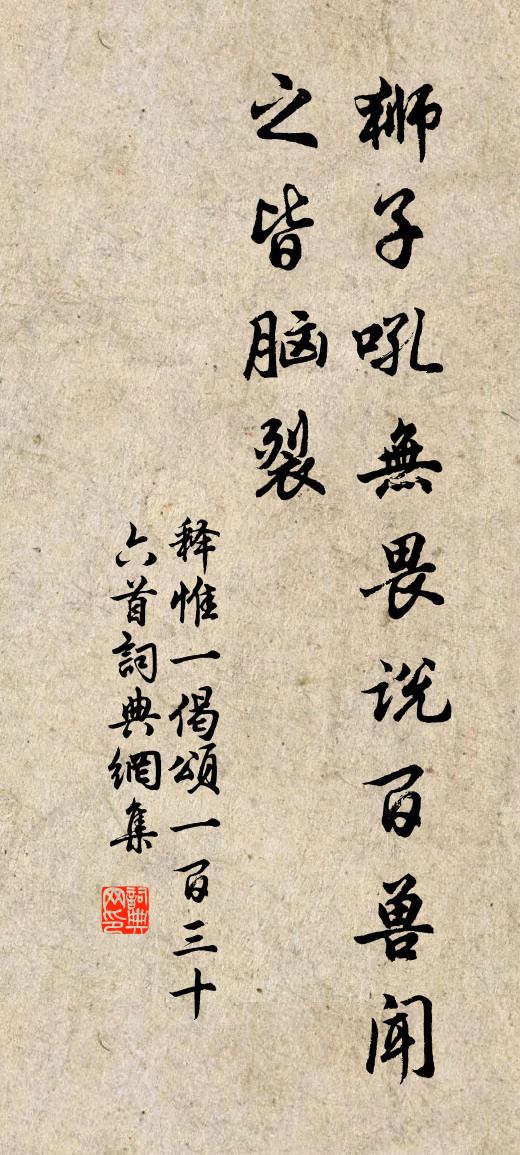 狮子吼無畏说百兽闻
之皆脑裂
释惟一偈頌一百三十
六首詞典網集
詞典网印